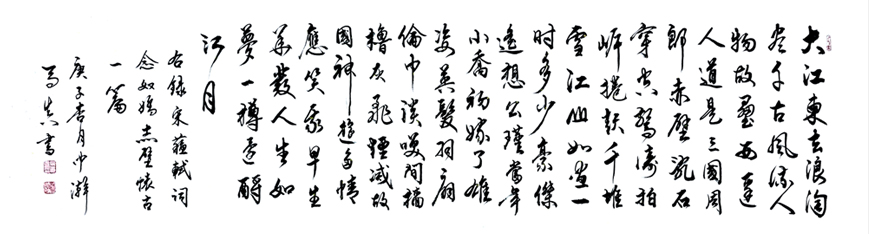 大江東去浪淘
盡千古風流人
物故壘西邊
人道是三國周
郎赤壁亂石
穿空驚濤拍
岸捲起千堆
雪江山如畫一
時多少豪傑
遙想公瑾當年
小喬初嫁了雄
姿英髮羽扇
綸巾談笑間檣
櫓灰飛煙滅故
國神遊多情
應笑我早生
華發人生如
夢一樽還酹
江月
右錄宋蘇軾詞
念奴嬌赤壁懷古
一篇
庚子杏月中澣
書